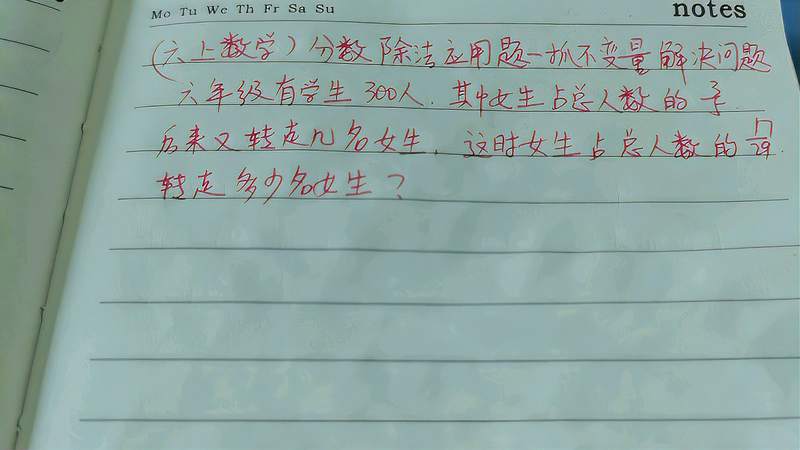 Mo Tu We Th Fr Sa Su
notes
(六上数学)分数除法应用题一抓不变量解决问题
六年级有学生300人.其中女生占总人数的
后来又转走几名女生,这时女生占总人数的17/29.
转走多少名女生?